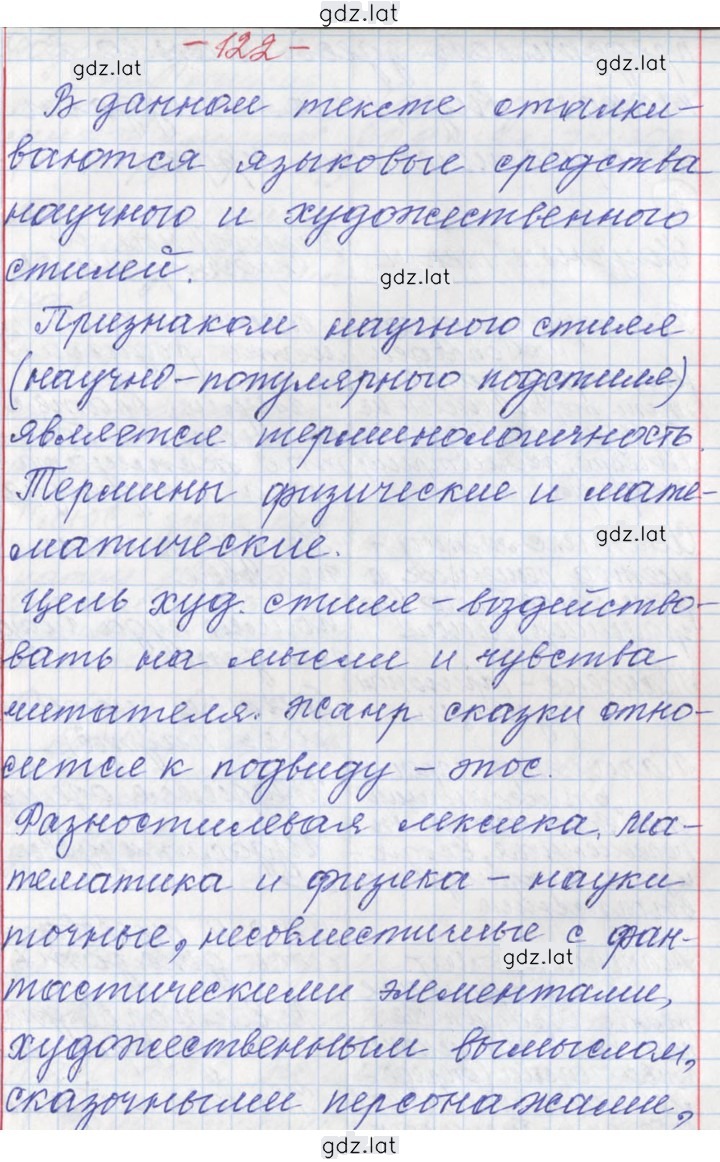 gdz.lat
- 122 -
gdz.lat
gdz.lat
В данном тексте сталки-
ваются языковые средства
научного и художественного
стилей.
gdz.lat
Признаком научного стиля
(научно-популярного подстиля)
является терминологичность.
Термины физические и мате-
матические.
gdz.lat
Цель худ. стиля - воздейство-
вать на мысли и чувства
читателя. Жанр сказки отно-
сится к подвиду - эпос.
Разностилевая лексика. Ма-
тематика и физика - науки
точные, несовместимые с фан-
gdz.lat
тастическими элементами,
художественным вымыслом,
сказочными персонажами,
gdz.lat